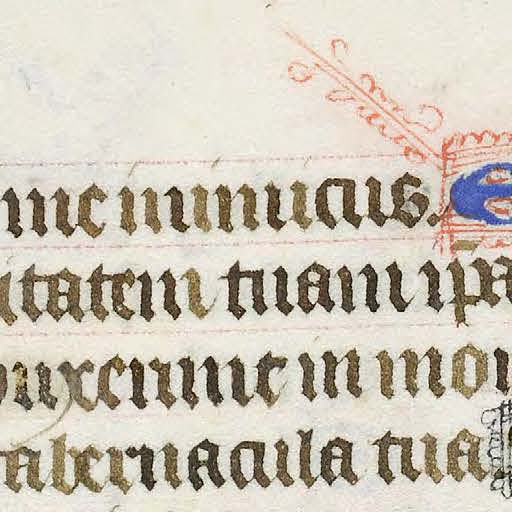 me inimicus. E
itatem tuam ip̄a
duxerunt in mon
tabernacula tua